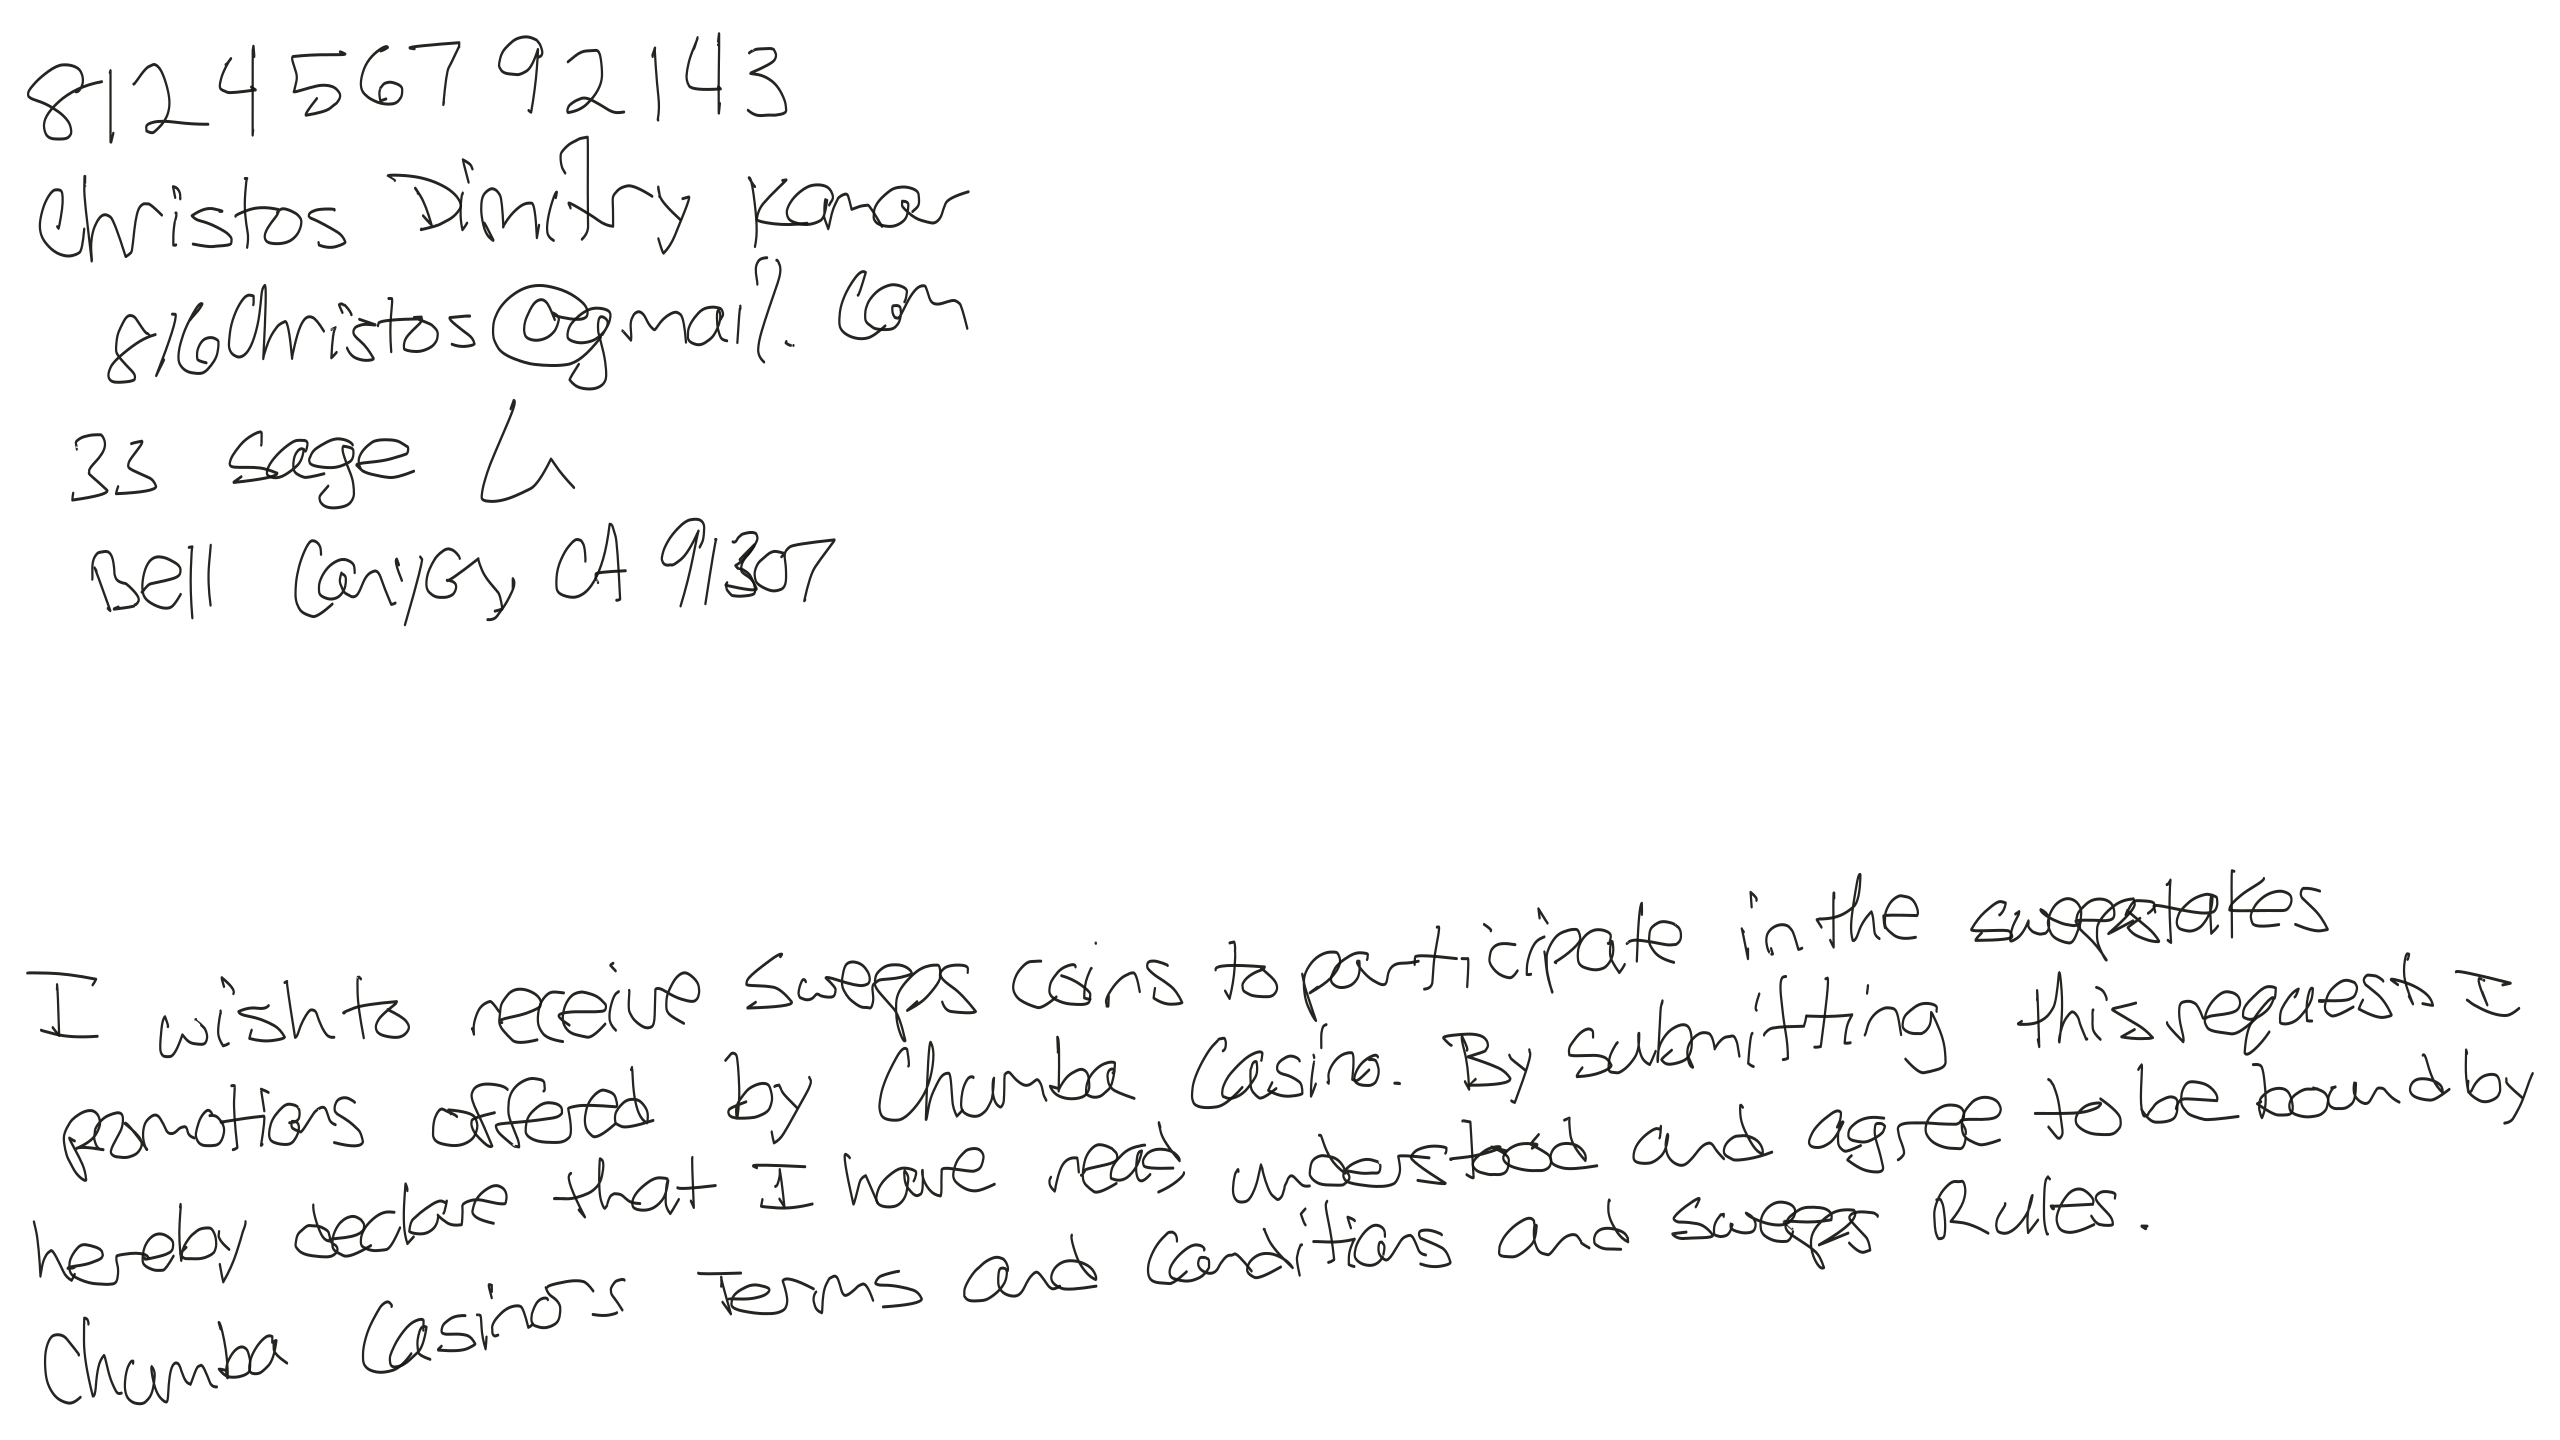 812456792143
Christos Dimitry Kanaar
816Christos@gmail.com
33 Sage Ln
Bell Canyon, CA 91307
I wish to receive Sweeps coins to participate in the sweepstakes
promotions offered by Chumba Casino. By submitting this request I
hereby declare that I have read understood and agree to be bound by
Chumba Casino's Terms and Conditions and Sweeps Rules.